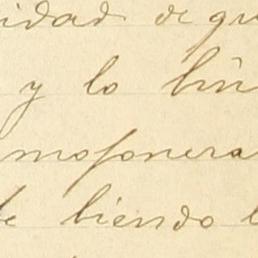 idad de qu
y lo
mosonera
biendo l